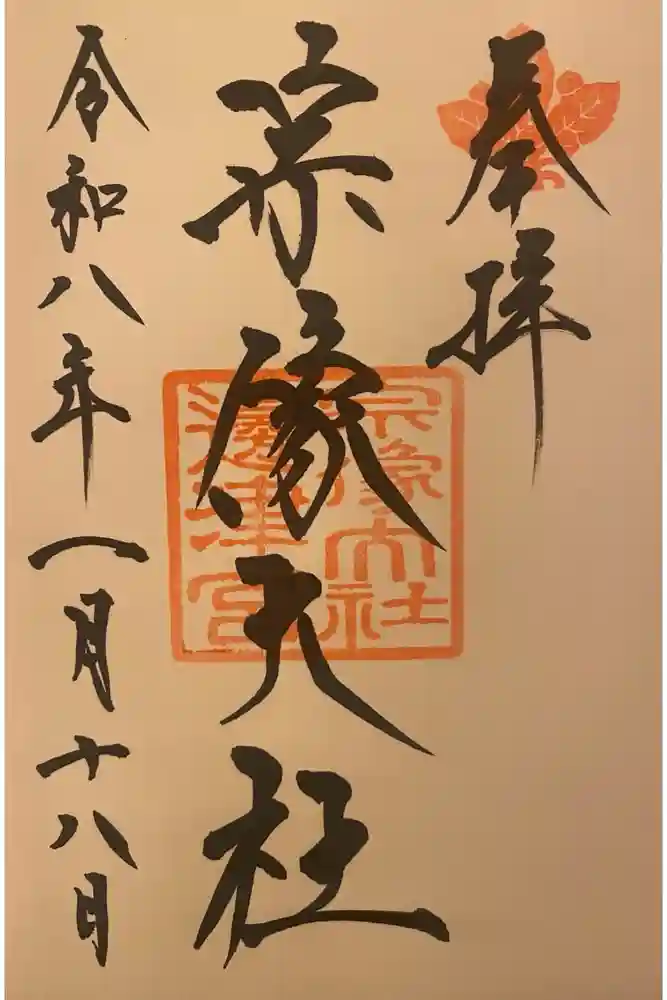 奉拝
宗像大社
宗像大社
邊津宮
令和八年一月十八日